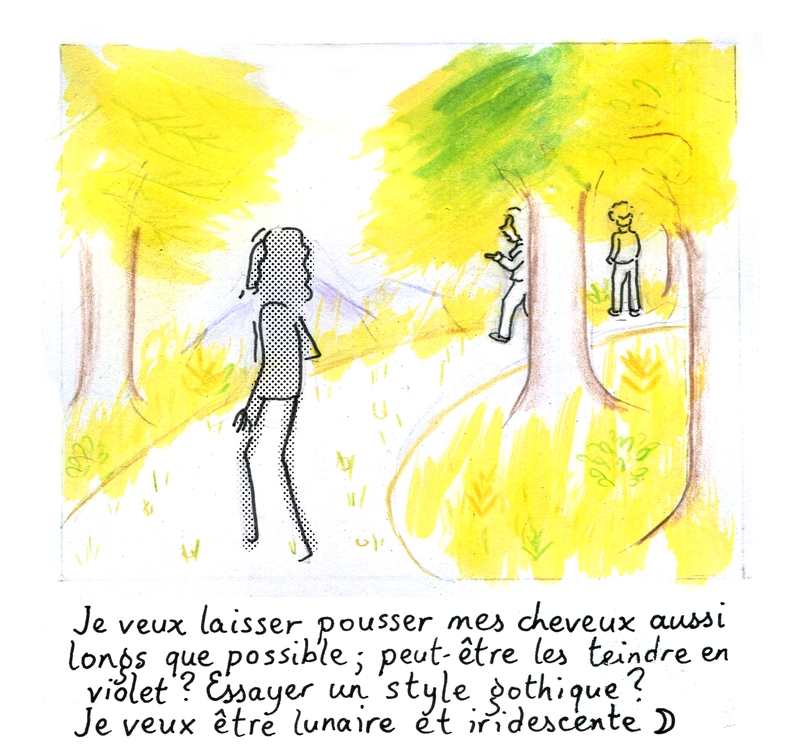 Je veux laisser pousser mes cheveux aussi
longs que possible ; peut-être les teindre en
violet ? Essayer un style gothique ?
Je veux être lunaire et iridescente ☽